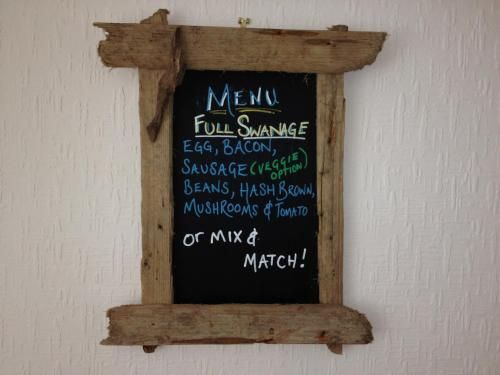 MENU
FULL SWANAGE
EGG, BACON,
SAUSAGE (VEGGIE OPTION)
BEANS, HASH BROWN,
MUSHROOMS & TOMATO
OR MIX &
MATCH!